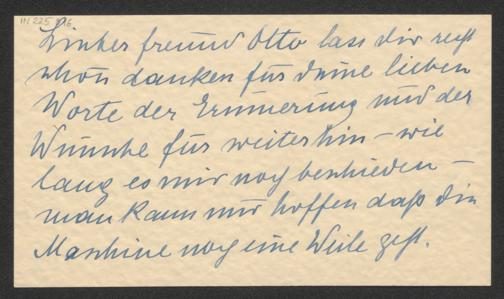 IN 225 816
Lieber freund Otto lass dir recht
schön danken für deine lieben
Worte der Erinnerung und der
Wünsche für weiterhin – wie
lang es mir noch beschieden –
man kann nur hoffen daß die
Maschine noch eine Weile geht.